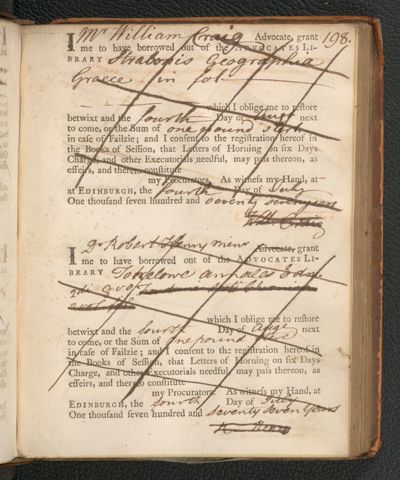 198.
I Mr William Craig Advocate, grant
me to have borrowed out of the ADVOCATES LI-
BRARY Strabonis Geographia
Graece in fol
which I oblige me to restore
betwixt and the fourth Day of August next
to come, or the Sum of one pound sterl
in case of Failzie; and I consent to the registration hereof in
the Books of Session, that Letters of Horning on six Days
Charge, and other Executorials needful, may pass thereon, as
effeirs, and thereto constitute
my Procurators. As witness my Hand, at
at EDINBURGH, the fourth Day of July
One thousand seven hundred and seventy seven years
Will: Craig
I Dr Robert Henry minr Advocate, grant
me to have borrowed out of the ADVOCATES LI-
BRARY annales
2di
2 vol
which I oblige me to restore
betwixt and the fourth Day of Augt next
to come, or the Sum of one pound
in case of Failzie; and I consent to the registration hereof in
the Books of Session, that Letters of Horning on six Days
Charge, and other Executorials needful may pass thereon, as
effeirs, and thereto constitute
my Procurators. As witness my Hand, at
EDINBURGH, the fourth Day of July
One thousand seven hundred and seventy seven years
Henry